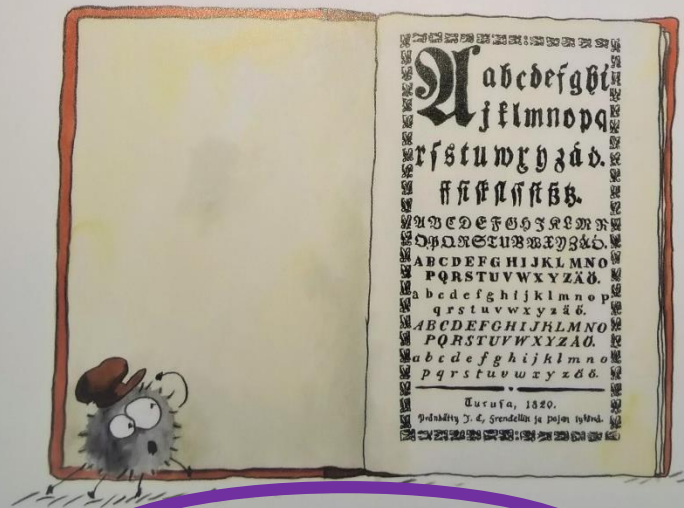 A abcdefghi
jklmnopq
rſstuwxyzåö.
ABCDEFGHIJKLMN
OPQRSTUVWXYZÄÖ.
ABCDEFGHIJKLMNO
PQRSTUVWXYZÄÖ.
abcdefghijklmnop
qrstuvwxyzäö.
ABCDEFGHIJKLMNO
PQRSTUVWXYZÄÖ.
abcdefghijklmno
pqrstuvwxyzäö.
Turusa, 1820.
Prändätty J. C. Frenckellin ja pojan tykönä.